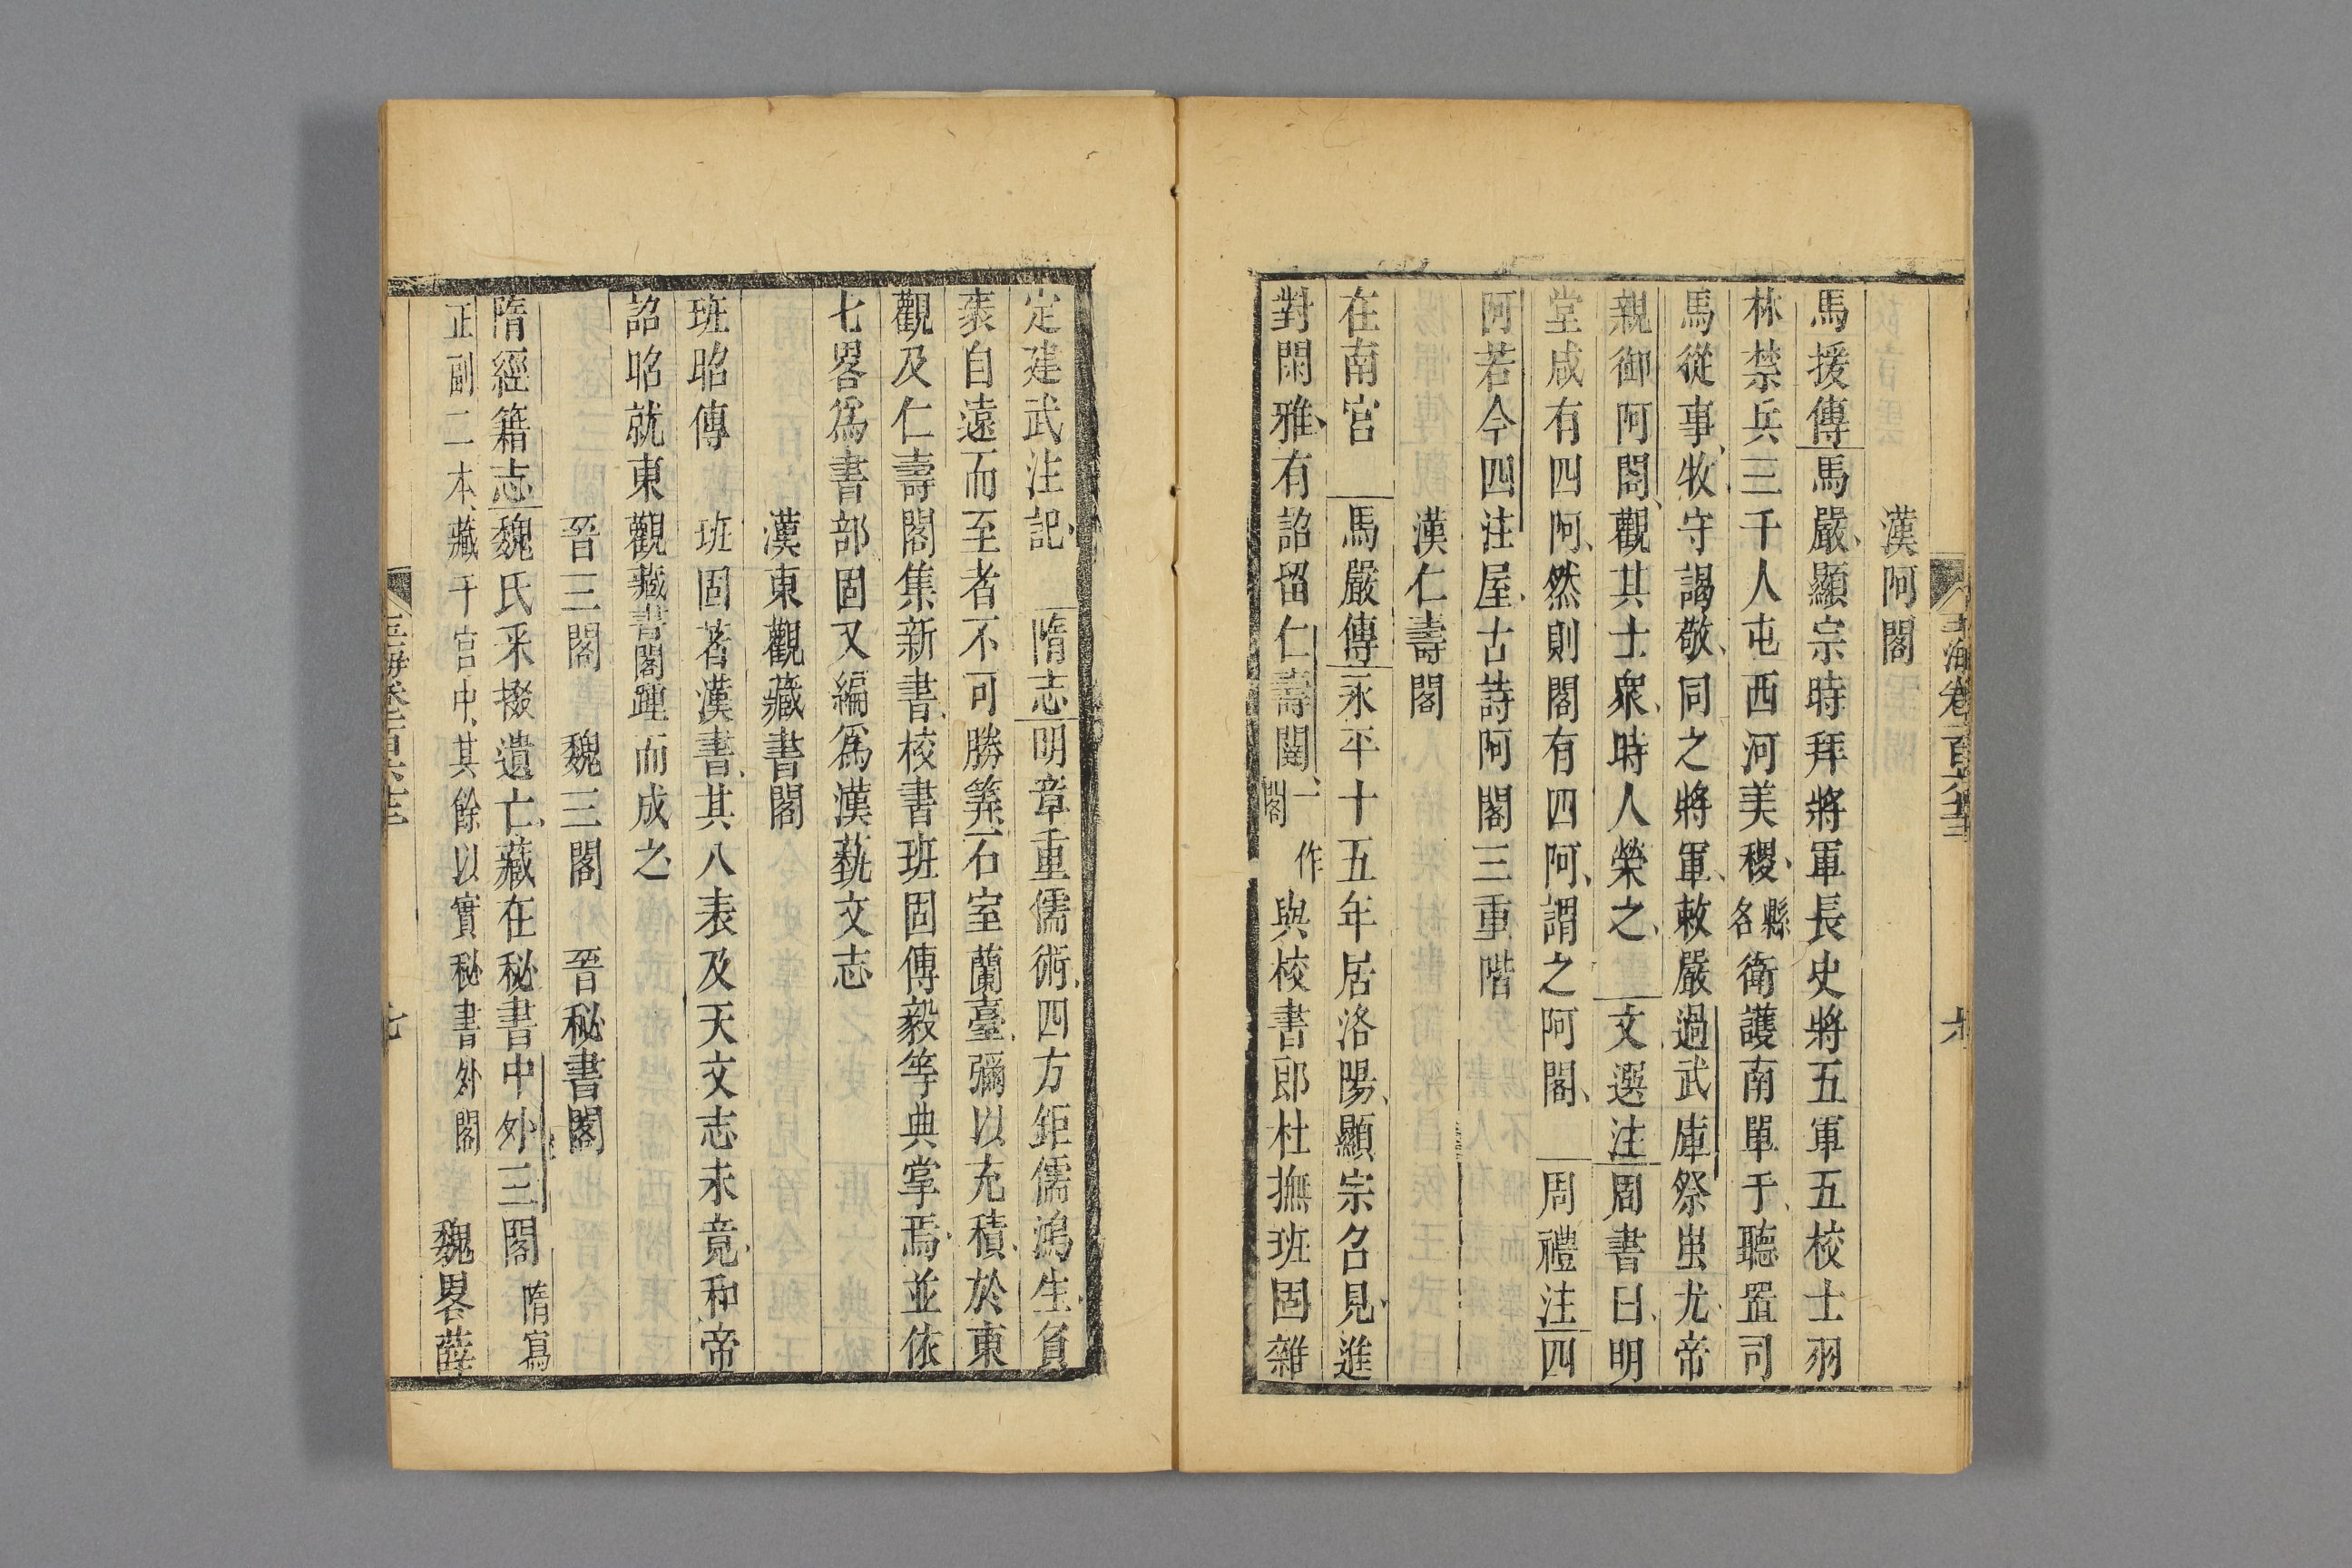 玉海卷一百六十三
六
漢阿閣
馬援傳馬嚴顯宗時拜將軍長史將五軍五校士羽
林禁兵三千人屯西河美稷縣名衛護南單于聽置司
馬從事牧守謁敬同之將軍敕嚴過武庫祭蚩尤帝
親御阿閣觀其士衆時人榮之 文選注周書曰明
堂咸有四阿然則閣有四阿謂之阿閣 周禮注四
阿若今四注屋古詩阿閣三重階
漢仁壽閣
在南宮 馬嚴傳永平十五年居洛陽顯宗召見進
對閑雅有詔留仁壽闥一作閣與校書郎杜撫班固雜
定建武注記 隋志明章重儒術四方鉅儒鴻生負
袠自遠而至者不可勝筭石室蘭臺彌以充積於東
觀及仁壽閣集新書校書班固傅毅等典掌焉並依
七畧爲書部固又編爲漢蓺文志
漢東觀藏書閣
班昭傳 班固著漢書其八表及天文志未竟和帝
詔昭就東觀藏書閣踵而成之
晉三閣 魏三閣 晉秘書閣
隋經籍志魏氏采掇遺亡藏在秘書中外三閣 隋寫
正副二本藏于宮中其餘以實秘書外閣 魏畧薛
玉海卷一百六十三
七